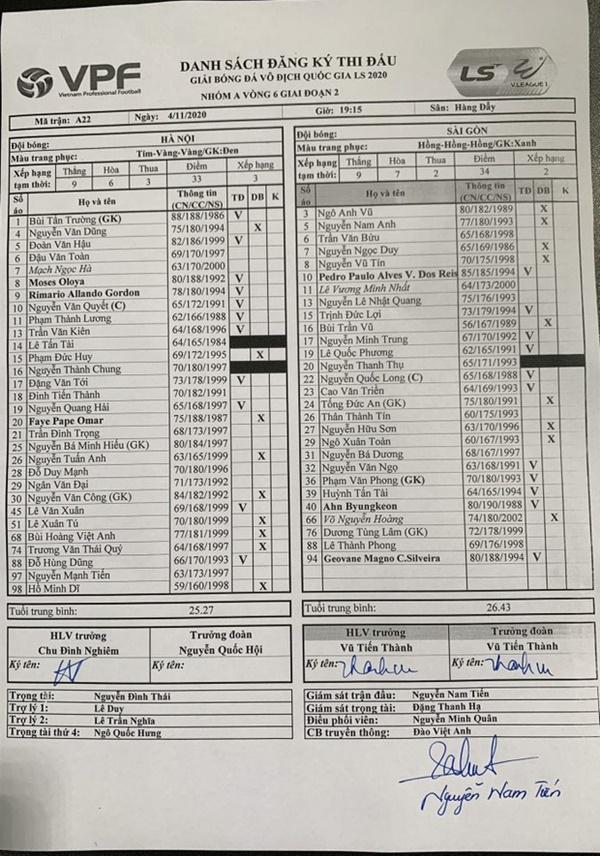 VPF
Vietnam Professional Football
DANH SÁCH ĐĂNG KÝ THI ĐẤU
GIẢI BÓNG ĐÁ VÔ ĐỊCH QUỐC GIA LS 2020
NHÓM A VÒNG 6 GIAI ĐOẠN 2
LS V.LEAGUE 1
Mã trận: A22 Ngày: 4/11/2020 Giờ: 19:15 Sân: Hàng Đẫy
Đội bóng: HÀ NỘI
Màu trang phục: Tím-Vàng-Vàng/GK:Đen
Xếp hạng tạm thời: Thắng Hòa Thua Điểm Xếp hạng
9 6 3 33 3
Số áo Họ và tên Thông tin (CN/CC/NS) TĐ DB K
1 Bùi Tấn Trường (GK) 88/188/1986 V
4 Nguyễn Văn Dũng 75/180/1994 X
5 Đoàn Văn Hậu 82/186/1999 V
6 Đậu Văn Toàn 69/170/1997
7 Mạch Ngọc Hà 63/170/2000
8 Moses Oloya 80/188/1992 V
9 Rimario Allando Gordon 78/180/1994 V
10 Nguyễn Văn Quyết (C) 65/172/1991 V
11 Phạm Thành Lương 62/166/1988 V
13 Trần Văn Kiên 64/168/1996 V
14 Lê Tấn Tài 64/165/1984
15 Phạm Đức Huy 69/172/1995 X
16 Nguyễn Thành Chung 70/180/1997
17 Đặng Văn Tới 73/178/1999 V
18 Đinh Tiến Thành 70/182/1991
19 Nguyễn Quang Hải 65/168/1997 V
20 Faye Pape Omar 75/188/1987 X
21 Trần Đình Trọng 68/173/1997
25 Nguyễn Bá Minh Hiếu (GK) 80/184/1997
26 Nguyễn Tuấn Anh 63/165/1999 X
28 Đỗ Duy Mạnh 70/180/1996
29 Ngân Văn Đại 71/173/1992
30 Nguyễn Văn Công (GK) 84/182/1992 X
45 Lê Văn Xuân 69/168/1999 V
51 Lê Xuân Tú 70/180/1999 X
68 Bùi Hoàng Việt Anh 77/181/1999 X
74 Trương Văn Thái Quý 64/168/1997 X
88 Đỗ Hùng Dũng 66/170/1993 V
97 Nguyễn Mạnh Tiến 63/173/1997
98 Hồ Minh Dĩ 59/160/1998 X
Tuổi trung bình: 25.27
HLV trưởng Trưởng đoàn
Chu Đình Nghiêm Nguyễn Quốc Hội
Ký tên: Ký tên:
Trọng tài: Nguyễn Đình Thái
Trợ lý 1: Lê Duy
Trợ lý 2: Lê Trần Nghĩa
Trọng tài thứ 4: Ngô Quốc Hưng
Đội bóng: SÀI GÒN
Màu trang phục: Hồng-Hồng-Hồng/GK:Xanh
Xếp hạng tạm thời: Thắng Hòa Thua Điểm Xếp hạng
9 7 2 34 2
Số áo Họ và tên Thông tin (CN/CC/NS) TĐ DB K
3 Ngô Anh Vũ 80/182/1989 X
5 Nguyễn Nam Anh 77/180/1993 X
6 Trần Văn Bửu 65/168/1998
7 Nguyễn Ngọc Duy 65/169/1986 X
8 Nguyễn Vũ Tín 70/175/1998 X
10 Pedro Paulo Alves V. Dos Reis 85/185/1994 V
11 Lê Vương Minh Nhất 64/173/2000
13 Nguyễn Lê Nhật Quang 75/176/1993
15 Trịnh Đức Lợi 73/179/1994 V
16 Bùi Trần Vũ 56/167/1989 X
17 Nguyễn Minh Trung 67/170/1992 V
19 Lê Quốc Phương 62/165/1991 V
20 Nguyễn Thanh Thụ 65/171/1993
22 Nguyễn Quốc Long (C) 65/168/1988 V
23 Cao Văn Triền 64/169/1993 V
24 Tống Đức An (GK) 75/180/1991 X
26 Thân Thành Tín 60/175/1993
27 Nguyễn Hữu Sơn 63/170/1996 X
29 Ngô Xuân Toàn 60/167/1993 X
31 Nguyễn Bá Dương 68/167/1997
32 Nguyễn Văn Ngọ 63/168/1991 V
36 Phạm Văn Phong (GK) 70/180/1993 V
39 Huỳnh Tấn Tài 64/165/1994 V
40 Ahn Byungkeon 80/190/1988 V
66 Võ Nguyên Hoàng 74/180/2002 X
76 Dương Tùng Lâm (GK) 72/178/1999
88 Lê Thành Phong 69/176/1998
94 Geovane Magno C.Silveira 80/188/1994 V
Tuổi trung bình: 26.43
HLV trưởng Trưởng đoàn
Vũ Tiến Thành Vũ Tiến Thành
Ký tên: Ký tên:
Giám sát trận đấu: Nguyễn Nam Tiến
Giám sát trọng tài: Đặng Thanh Hạ
Điều phối viên: Nguyễn Minh Quân
CB truyền thông: Đào Việt Anh
Nguyễn Nam Tiến